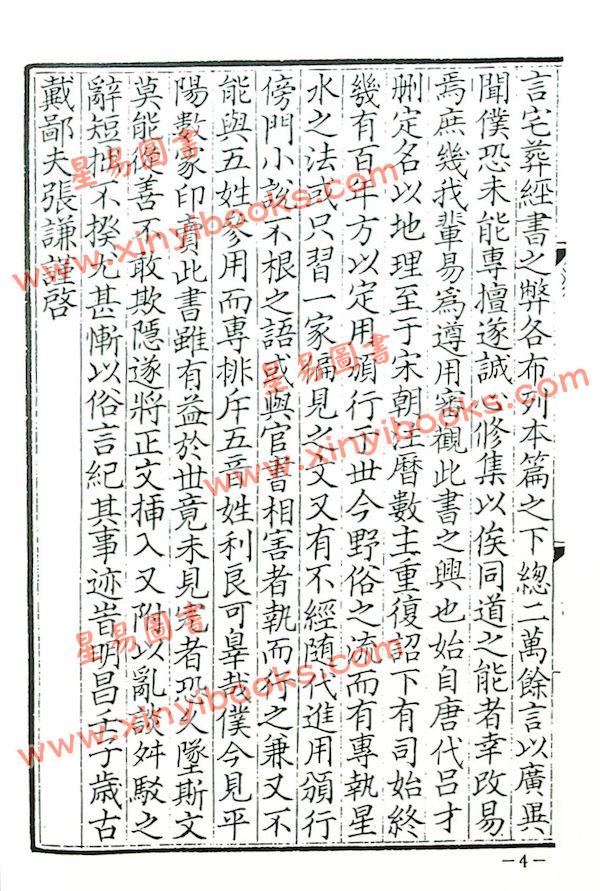 言宅葬經書之弊各布列本篇之下總二萬餘言以廣異
聞僕恐未能專擅遂誠心修集以俟同道之能者幸改易
焉庶幾我輩易為遵用審觀此書之興也始自唐代呂才
刪定名以地理至于宋朝注曆數主重復詔下有司始終
幾有百年方以定用頒行于世今野俗之流而有專執星
水之法或只習一家偏見之文又有不經随代進用頒行
傍門小說不根之語或與官書相害者執而行之兼又不
能與五姓參用而專排斥五音姓利良可辠哉僕今見平
陽數家印賣此書雖有益於世竟未見完者恐久墜斯文
莫能儘善不敢欺隠遂將正文揷入又附以亂談舛駁之
辭短拙不揆尤甚慚以俗言紀其事迹旹明昌壬子歳古
戴鄙夫張謙謹啓
-4-
星易圖書
www.xinyibooks.com
星易圖書
www.xinyibooks.com
星易圖書
www.xinyibooks.com